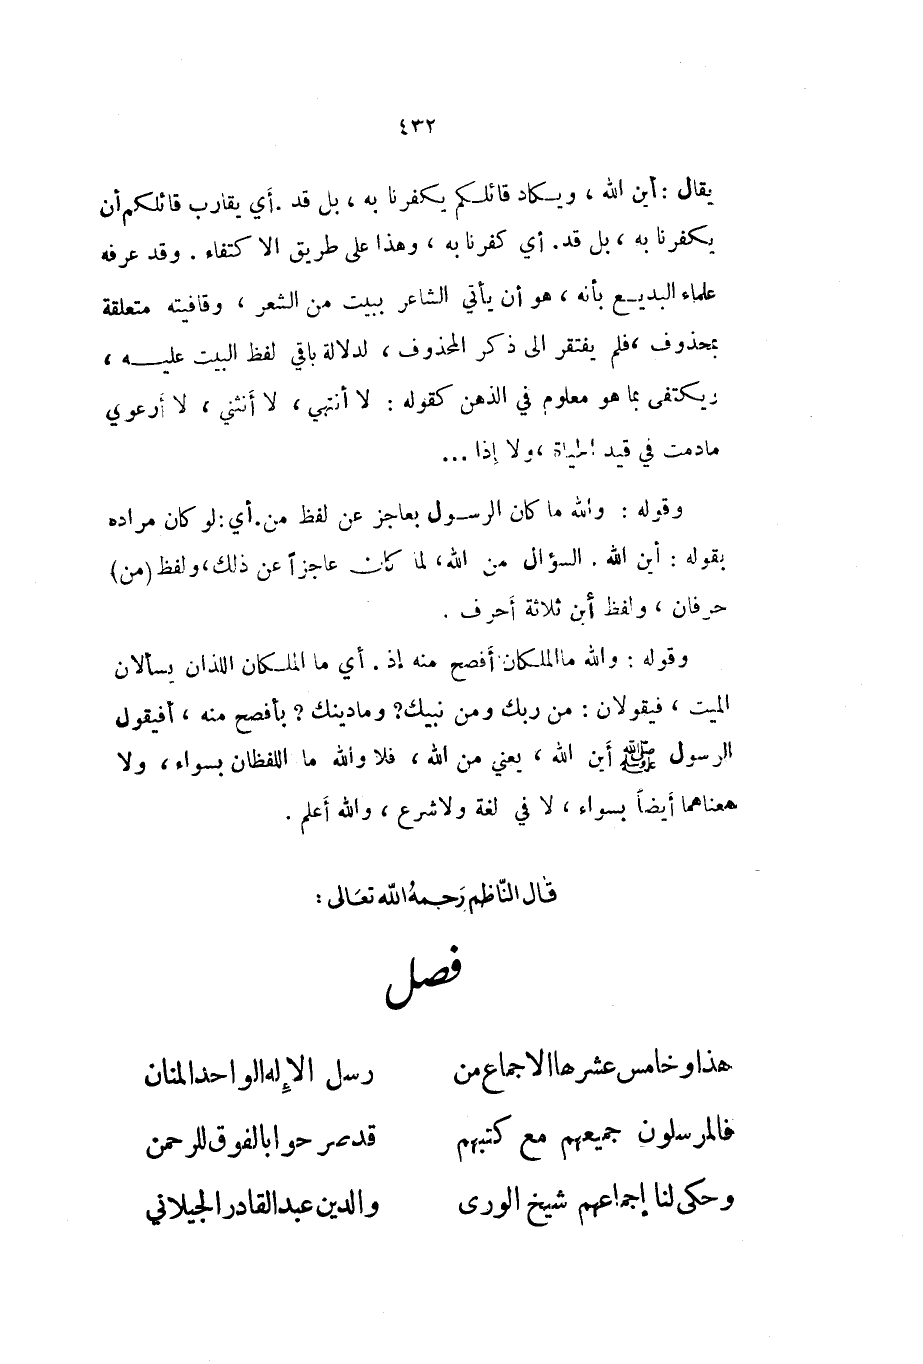 ٤٣٢
يقال : أين الله ، ويكاد قائلكم يكفرنا به ، بل قد . أي يقارب قائلكم أن
يكفرنا به ، بل قد. أي كفرنا به ، وهذا على طريق الاكتفاء . وقد عرفه
علماء البديع بأنه ، هو أن يأتي الشاعر ببيت من الشعر ، وقافيته متعلقة
بمحذوف ، فلم يفتقر الى ذكر المحذوف ، لدلالة باقي لفظ البيت عليه ،
ويكتفى بما هو معلوم في الذهن كقوله : لا أنتهي ، لا أنثني ، لا أرعوي
مادمت في قيد الحياة ، ولا إذا ...
وقوله : والله ما كان الرسول بعاجز عن لفظ من . أي : لو كان مراده
بقوله : أين الله . السؤال من الله ، لما كان عاجزاً عن ذلك ، ولفظ (من)
حرفان ، ولفظ أين ثلاثة أحرف .
وقوله : والله ما الملكان أفصح منه إذ . أي ما الملكان اللذان يسألان
الميت ، فيقولان : من ربك ومن نبيك ؟ ومادينك ؟ بأفصح منه ، أفيقول
الرسول ﷺ أين الله ، يعني من الله ، فلا والله ما اللفظان بسواء ، ولا
معناهما أيضاً بسواء ، لا في لغة ولاشرع ، والله أعلم .
قال النّاظم رَحمهُ الله تعَالى :
فصل
هذا وخامس عشرها الاجماع من رسل الإله الواحد المنان
فالمرسلون جميعهم مع كتبهم قد صرحوا بالفوق للرحمن
وحكى لنا إجماعهم شيخ الورى والدين عبد القادر الجيلاني